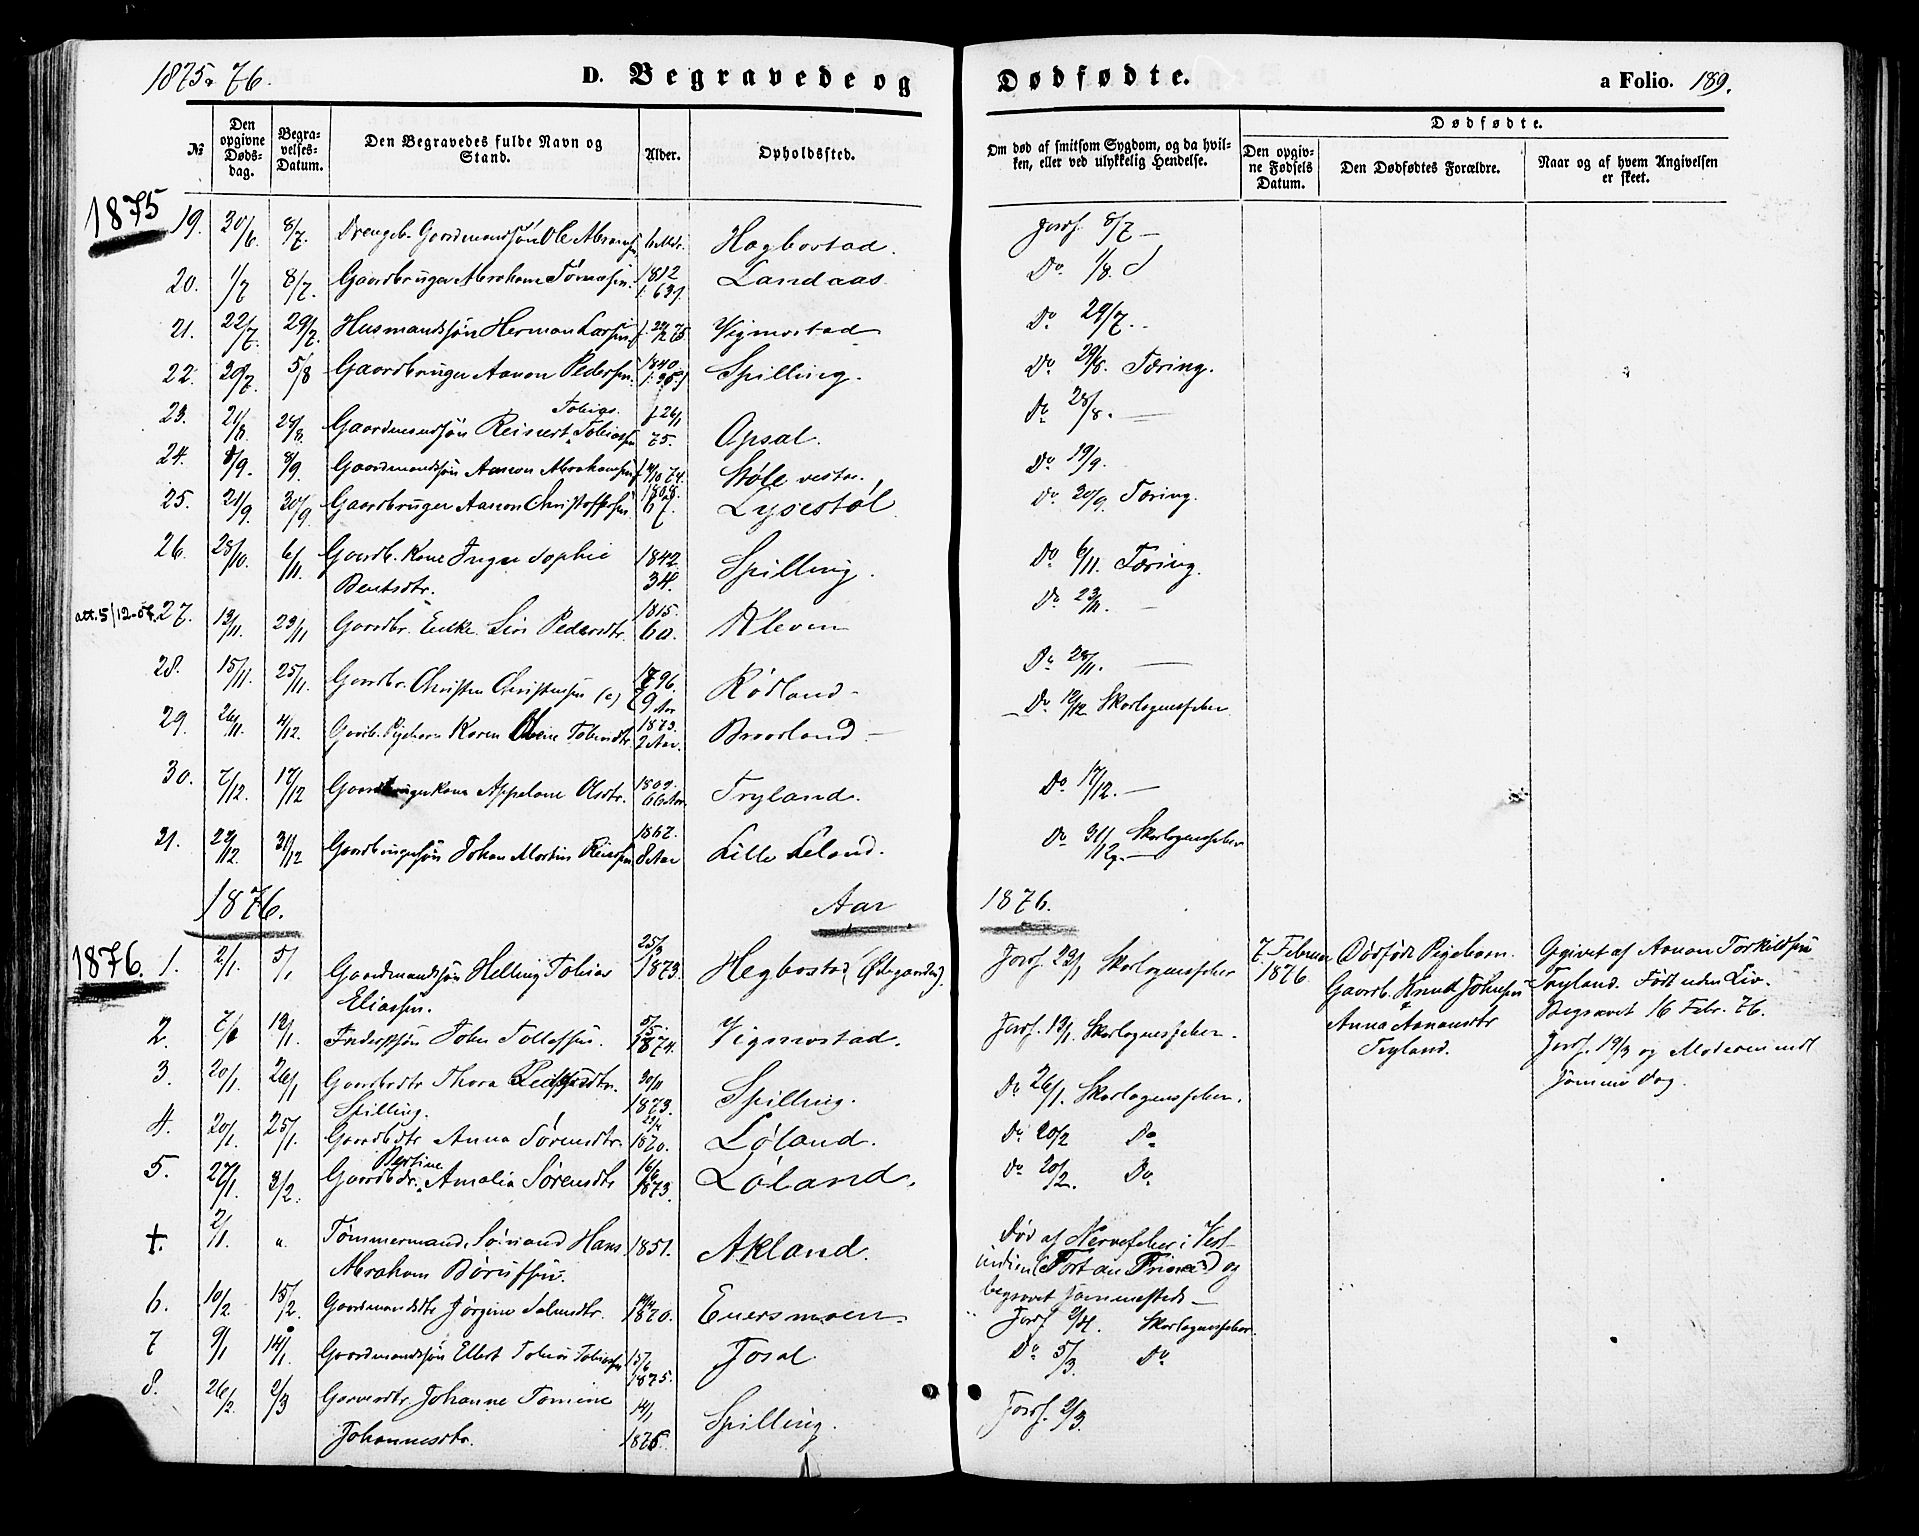 1875 & 76.
D. Begravede og
Dødfødte.
a Folio. 189.
№
Den opgivne Døds-dag.
Begra-velses-Datum.
Den Begravedes fulde Navn og Stand.
Alder.
Opholdssted.
Om død af smitsom Sygdom, og da hvil-ken, eller ved ulykkelig Hendelse.
Dødfødte.
Den opgiv-ne Fødsels Datum.
Den Dødfødtes Forældre.
Naar og af hvem Angivelsen er skeet.
1875
19. 30/6 8/7. Drengeb. Gaardmandssøn Ole 6 Mdr. Hægbostad. Jordf. 8/7 —
20. 1/7 8/7. Gaardbruger Abraham 1812 Landaas. Do 1/8.
21. 22/7. 29/7. Husmandssøn Herman Larsen Vigmostad Do 29/7.
22. 5/8 Gaardbruger Aanon Pedersen. 1840 Spilling. Do 29/8. Tæring.
Tobias.
23. 21/8. 28/8. Gaardmandssøn Reinert Tobiassen 75. Opsal. Do 28/8. —
24. 8/9. Gaardmandssøn Aanon Abrahamsen 74. Støle vestre. Do 19/9.
25. 21/9 30/9. Gaardbruger Aanon 67. Lysestøl Do 20/9. Tæring.
26. 28/10. 6/11. Gaardb. Kone Inger Sophie 1842 Spilling. Do 6/11. Tæring.
Bentsdtr. 34.
att. 5/12-07. 27. 13/11. 23/11 Gaardbr. Enke Siri Pedersdtr. 1815. 60. Kleven Do 23/11. —
28. 15/11. 25/11. Gaardbr. Christen Christensen (e) 1796. 79 Aar Rødland — Do 28/11. —
29. 26/11. 4/12. Gaardb. Pigebarn Karen 1873. 2 Aar. Braaland — Do 12/12 Skarlagensfeber.
30. 7/12. 17/12 Gaardbrugerkone Appelone Olsdtr. 1809. 66 Aar. Tryland. Do 17/12. —
31. 22/12. 31/12 Gaardbrugersøn Johan Martin 1867. 8 Aar Lille Leland. Do 31/12 Skarlagensfeber
1876. Aar 1876.
1876. 1. 2/1. 5/1 Gaardmandssøn Helling Tobias 25/3 1873. Hegbostad (Ødegaarden). Jordf. 23/1 Skarlagensfeber
Eliassen.
7. Februar 1876 Dødfødt Pigebarn.
Gaardb. Knud Johnsen
&
Anna Aanonsdtr
Tryland.
Aanon Torkildsen
Tryland. Født uden Liv.
Begravet 16 Febr. 76.
Jordf. 19/3 og Moderen indl
samme Dag.
2. 12/1. Inderstsøn John Tollefsen. 1874. Vigmostad. Jordf. 19/1. Skarlagensfeber.
3. 20/1. 26/1 Gaardbrdtr Thora 30/11 1873. Spilling. Do 26/1. Skarlagensfeber.
Spilling.
4. 20/1. 25/1. Gaardbdtr Anna Sørensdtr. 1870. Løland. Do 20/2 Do
Bertine
5. 27/1. 3/2. Gaardbdr. Amalia Sørensdtr 16/6 1873. Løland. Do 20/2. Do
†. 2/1. " Tømmermand, Sømand Hans 1851. Akland. Død af Nervefeber i Vest-
Abraham indien (Port au Prince) og
begravet sammesteds —
6. 10/2. 18/2. Gaardmandsdtr Jørgine Salmsdtr. 1870. Eversmoen. Jordf. Skarlagensfeber.
7 9/1 14/1. Gaardmandssøn Ellert Tobias Tobiassen 1875. Josal Do 5/3. Do
8. 26/2. 2/3 Johanne Tomine 14/1 Spilling. Jordf. 2/3.
Johannesdtr. 1876.